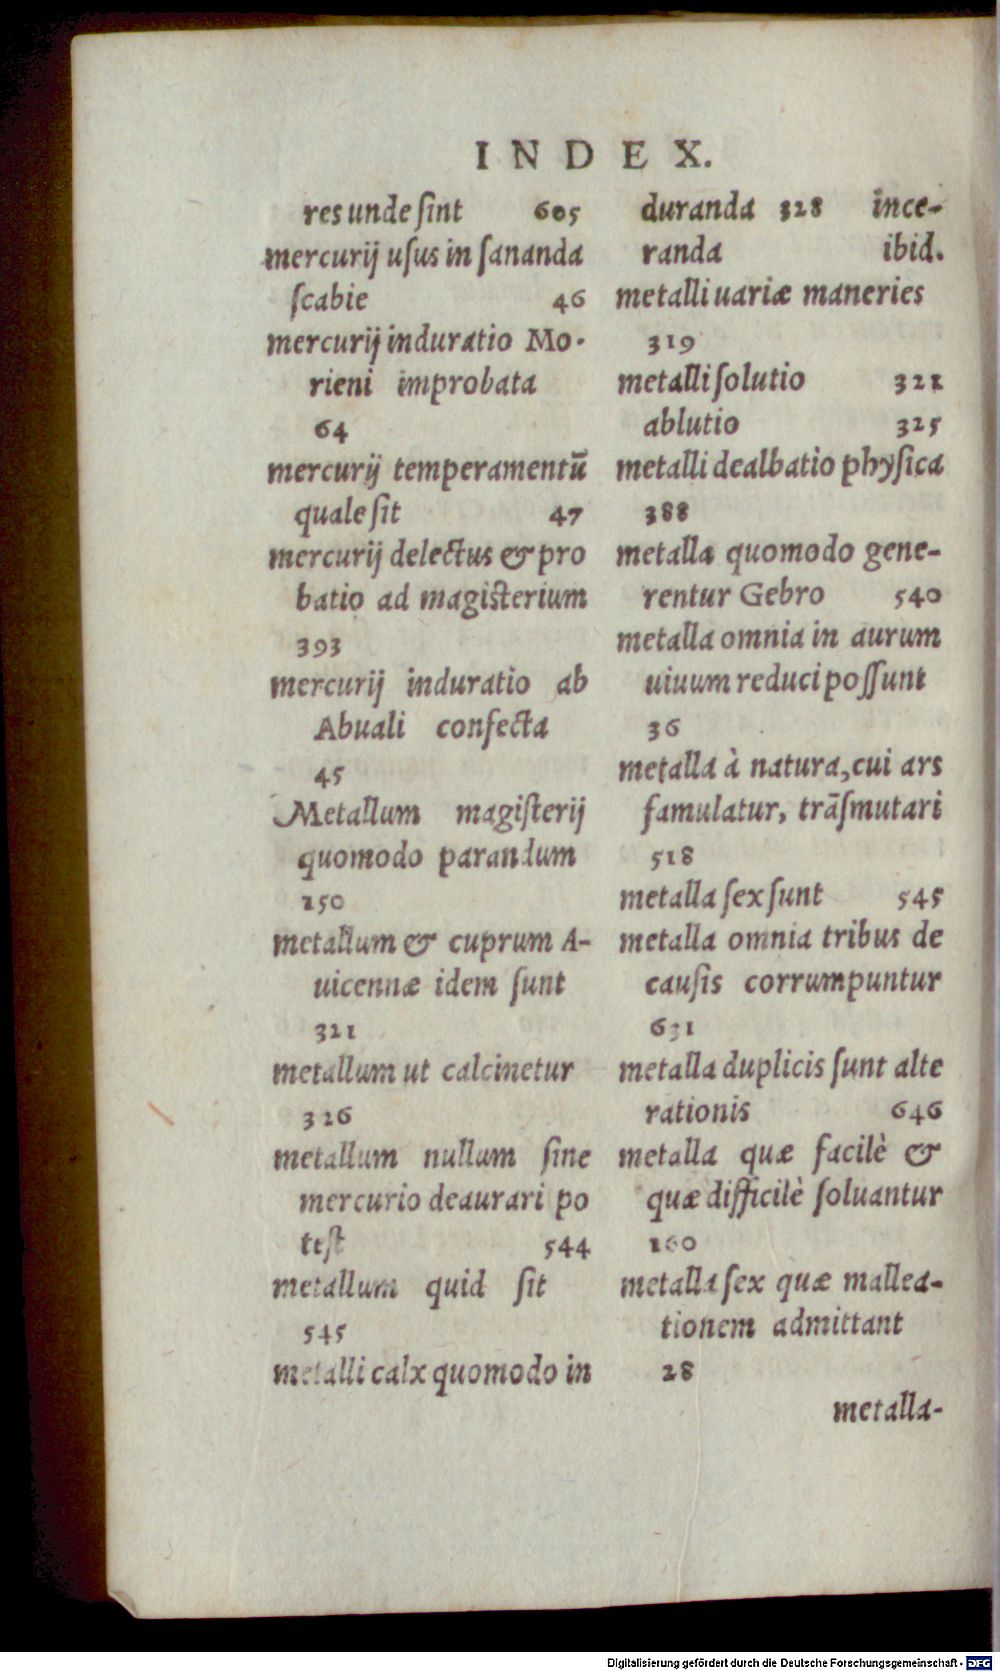 INDEX.
res unde ſint 605
mercurij uſus in ſananda
ſcabie 46
mercurij induratio Mo-
rieni improbata
64
mercurij temperamentū
quale ſit 47
mercurij delectus & pro
batio ad magiſterium
393
mercurij induratio ab
Abuali confecta
45
Metallum magiſterij
quomodo parandum
150
metallum & cuprum A-
uicennæ idem ſunt
321
metallum ut calcinetur
326
metallum nullum ſine
mercurio deaurari po
teſt 544
metallum quid ſit
545
metalli calx quomodo in
duranda 328 ince-
randa ibid.
metalli uariæ maneries
319
metalli ſolutio 321
ablutio 325
metalli dealbatio phyſica
388
metalla quomodo gene-
rentur Gebro 540
metalla omnia in aurum
uiuum reduci poſſunt
36
metalla à natura, cui ars
famulatur, trāſmutari
518
metalla ſex ſunt 545
metalla omnia tribus de
cauſis corrumpuntur
631
metalla duplicis ſunt alte
rationis 646
metalla quæ facilè &
quæ difficilè ſoluantur
160
metalla ſex quæ mallea-
tionem admittant
28
metalla-
Digitalisierung gefördert durch die Deutsche Forschungsgemeinschaft - DFG